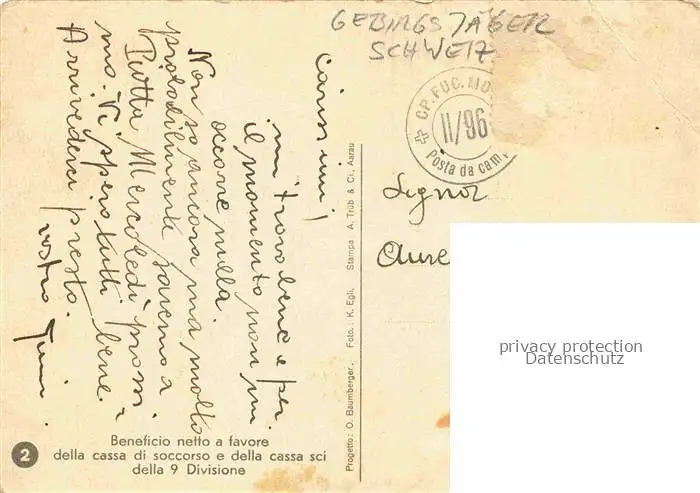 GEBIRGSJÄGER
SCHWEIZ
Carissimi,
mi trovo bene e per
il momento non mi
occorre nulla.
Non so ancora ma molto
probabilmente saremo a
Piotta Mercoledì prossi-
mo. Vi spero tutti bene.
Arrivederci presto.
vostro
CP. FUC. MO
II/96
Posta da camp
Signor
Aure
privacy protection
Datenschutz
Progetto: O. Baumberger, Foto: K. Egli, Stampa A. Trüb & Ci., Aarau
2
Beneficio netto a favore
della cassa di soccorso e della cassa sci
della 9 Divisione